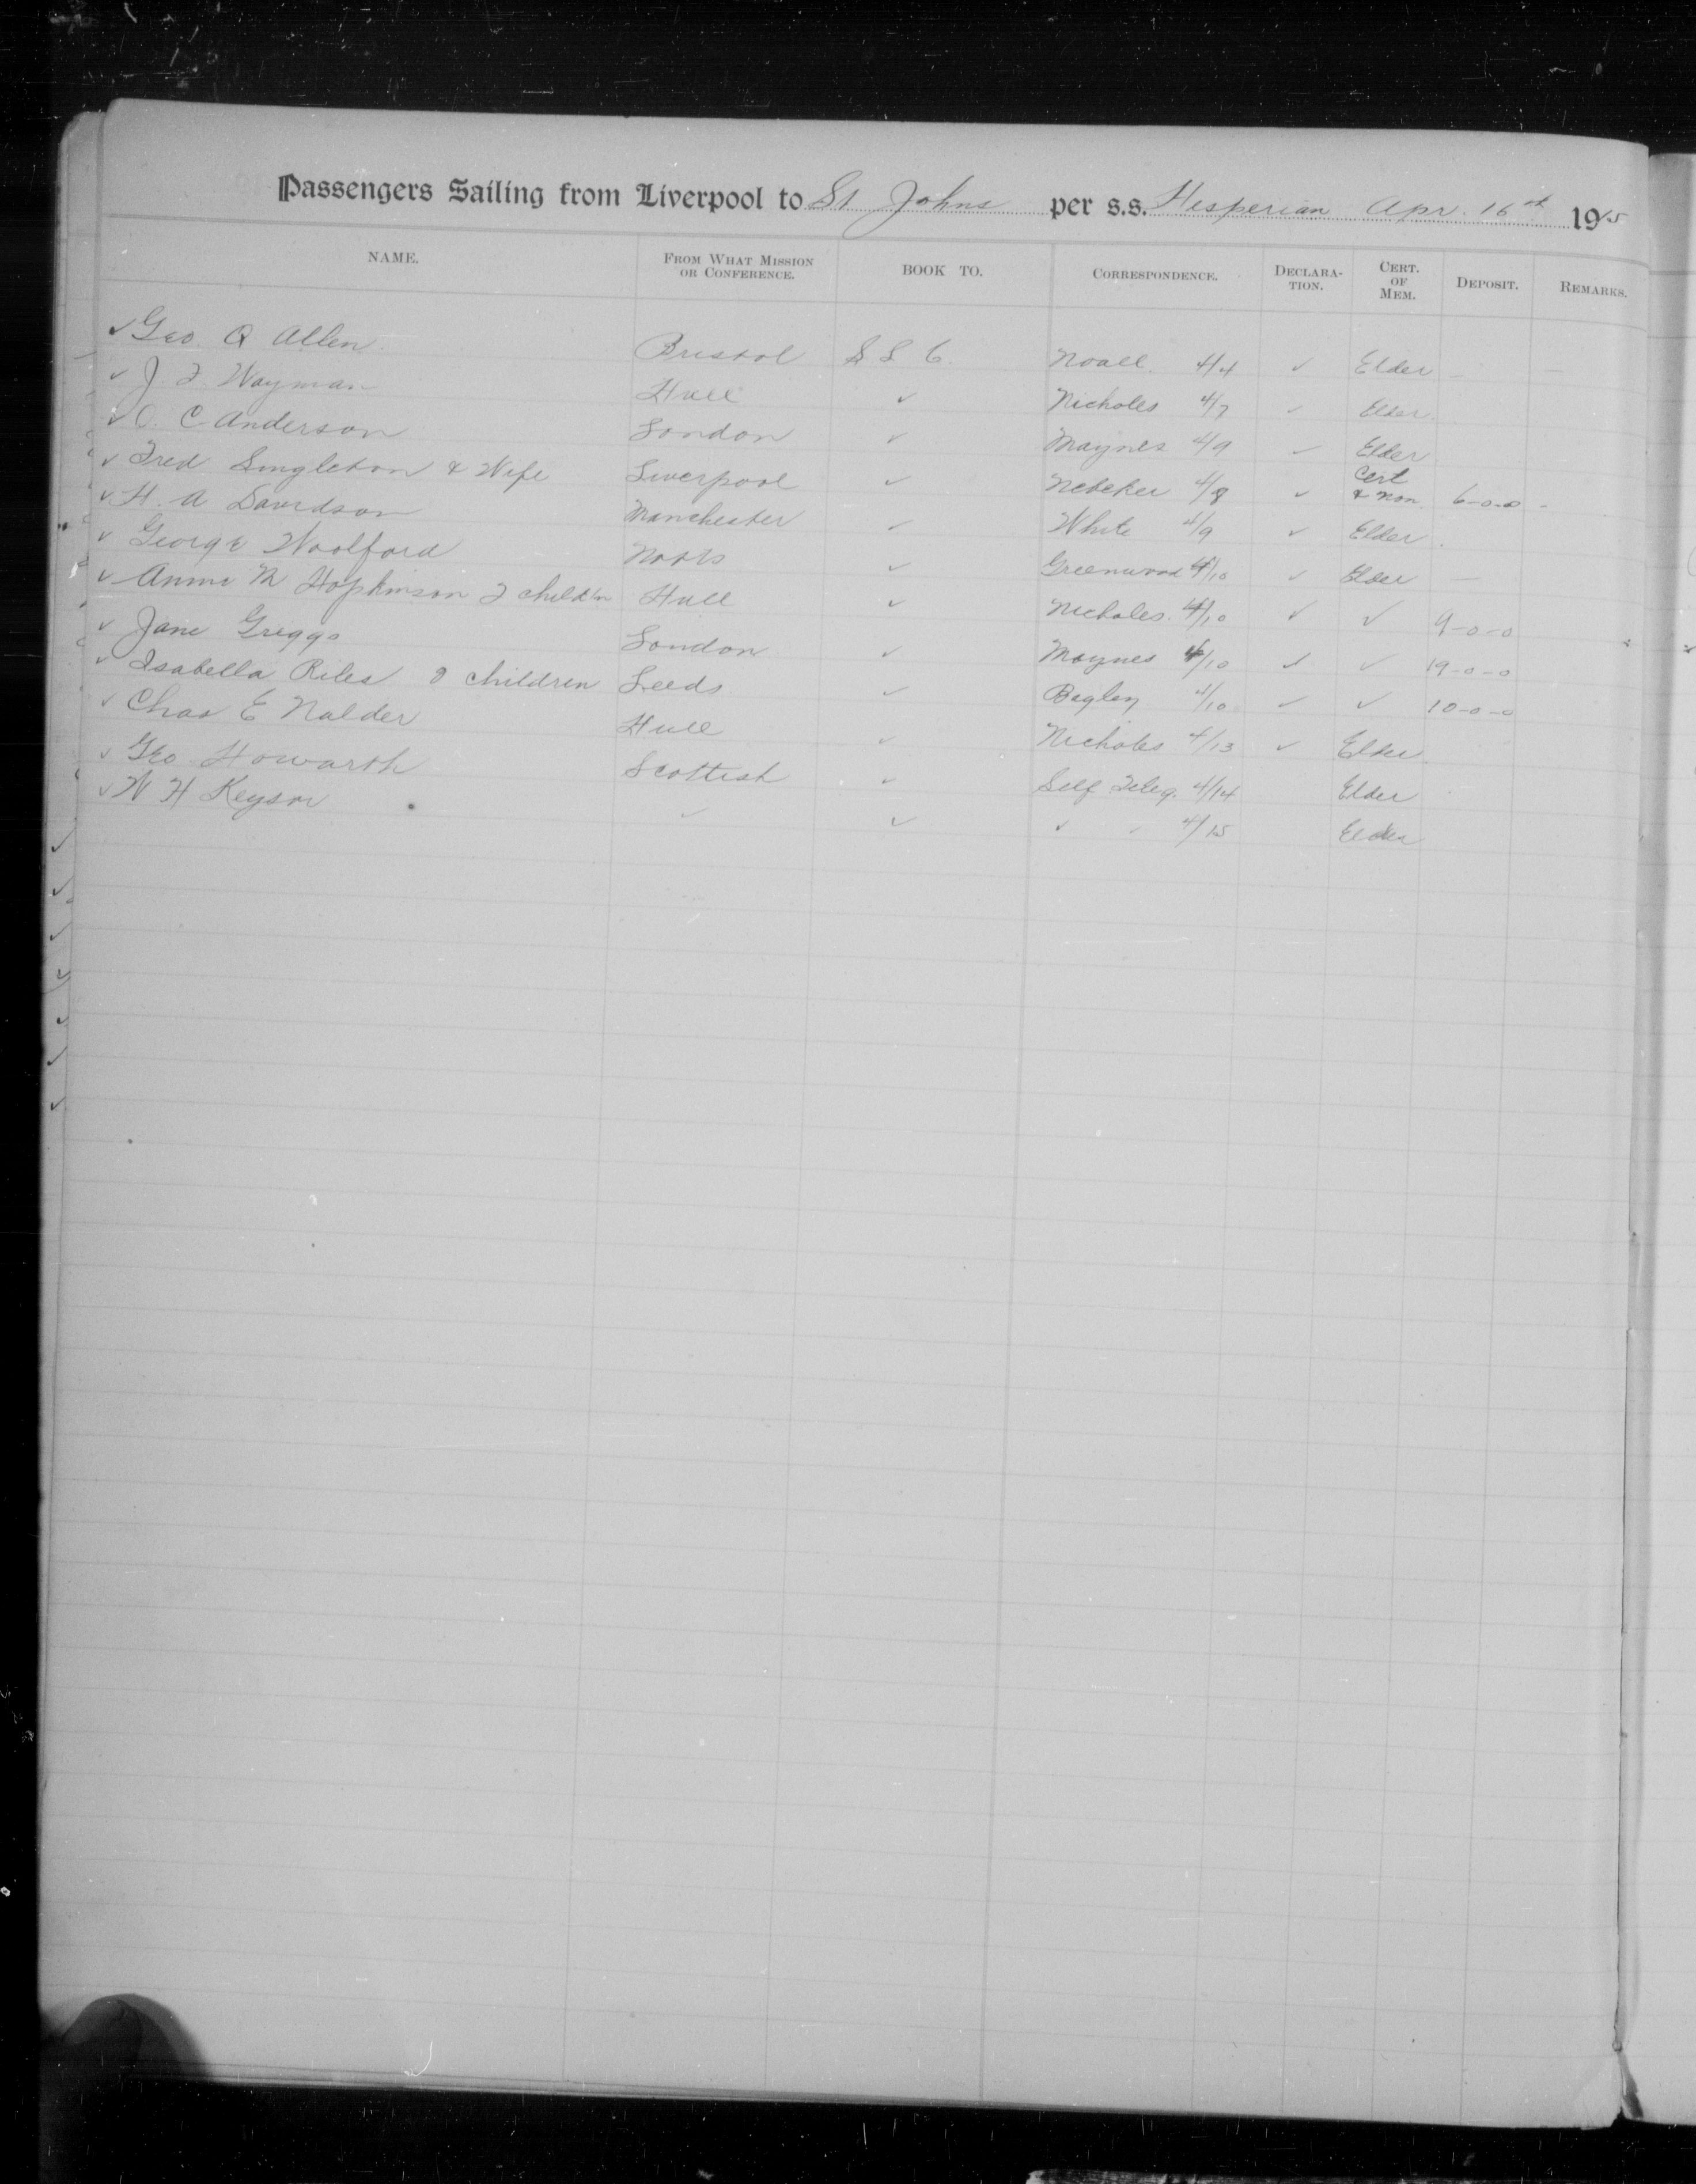 Passengers Sailing from Liverpool to St Johns per s.s. Hesperian Apr. 16th 1915
NAME. FROM WHAT MISSION OR CONFERENCE. BOOK TO. CORRESPONDENCE. DECLARA-TION. CERT. OF MEM. DEPOSIT. REMARKS.
✓ Geo. Q Allen. Bristol S L C. Noall. 4/4 ✓ Elder — —
✓ J. F. Wayman Hull ✓ Nicholes 4/7 ✓ Elder.
✓ O. C Anderson London ✓ Maynes 4/9 ✓ Elder
✓ Fred Singleton & Wife Liverpool ✓ Nebeker 4/8 ✓ Cert & non. 6-0-0 -
✓ H. A Davidson Manchester ✓ White 4/9 ✓ Elder.
✓ George Woolford Notts ✓ Greenwood 4/10 ✓ Elder —
✓ Annie M Hopkinson 2 childrn Hull ✓ Nicholes. 4/10 ✓ ✓ 9-0-0
✓ Jane Greggs London ✓ Maynes 4/10 ✓ ✓ 19-0-0
✓ Isabella Riles 2 children Leeds ✓ Bagley 4/10 ✓ ✓ 10-0-0
✓ Chas E Nalder Hull ✓ Nicholes 4/13 ✓ Elder.
✓ Geo Howarth Scottish ✓ Self Teleg. 4/14 Elder
✓ W H Keysor ✓ ✓ ✓ ✓ 4/15 Elder